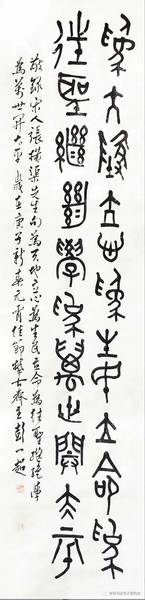 為天地立心為生民立命為
往聖繼絕學為萬世開太平
敬録宋人張橫渠先生句為天地立心為生民立命為往聖繼絕學
為萬世開太平 歲在庚子新春元宵佳節齋主彭一超